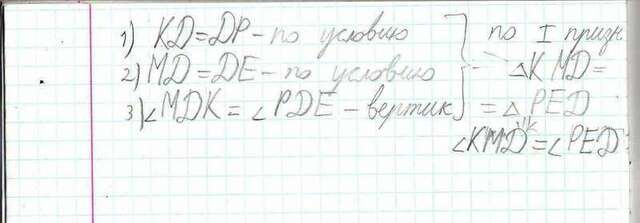 1) KD=DP – по условию } по I призн
2) MD=DE – по условию - △KMD=
3) ∠MDK = ∠PDE – вертик = △PED
∠KMD=∠PED